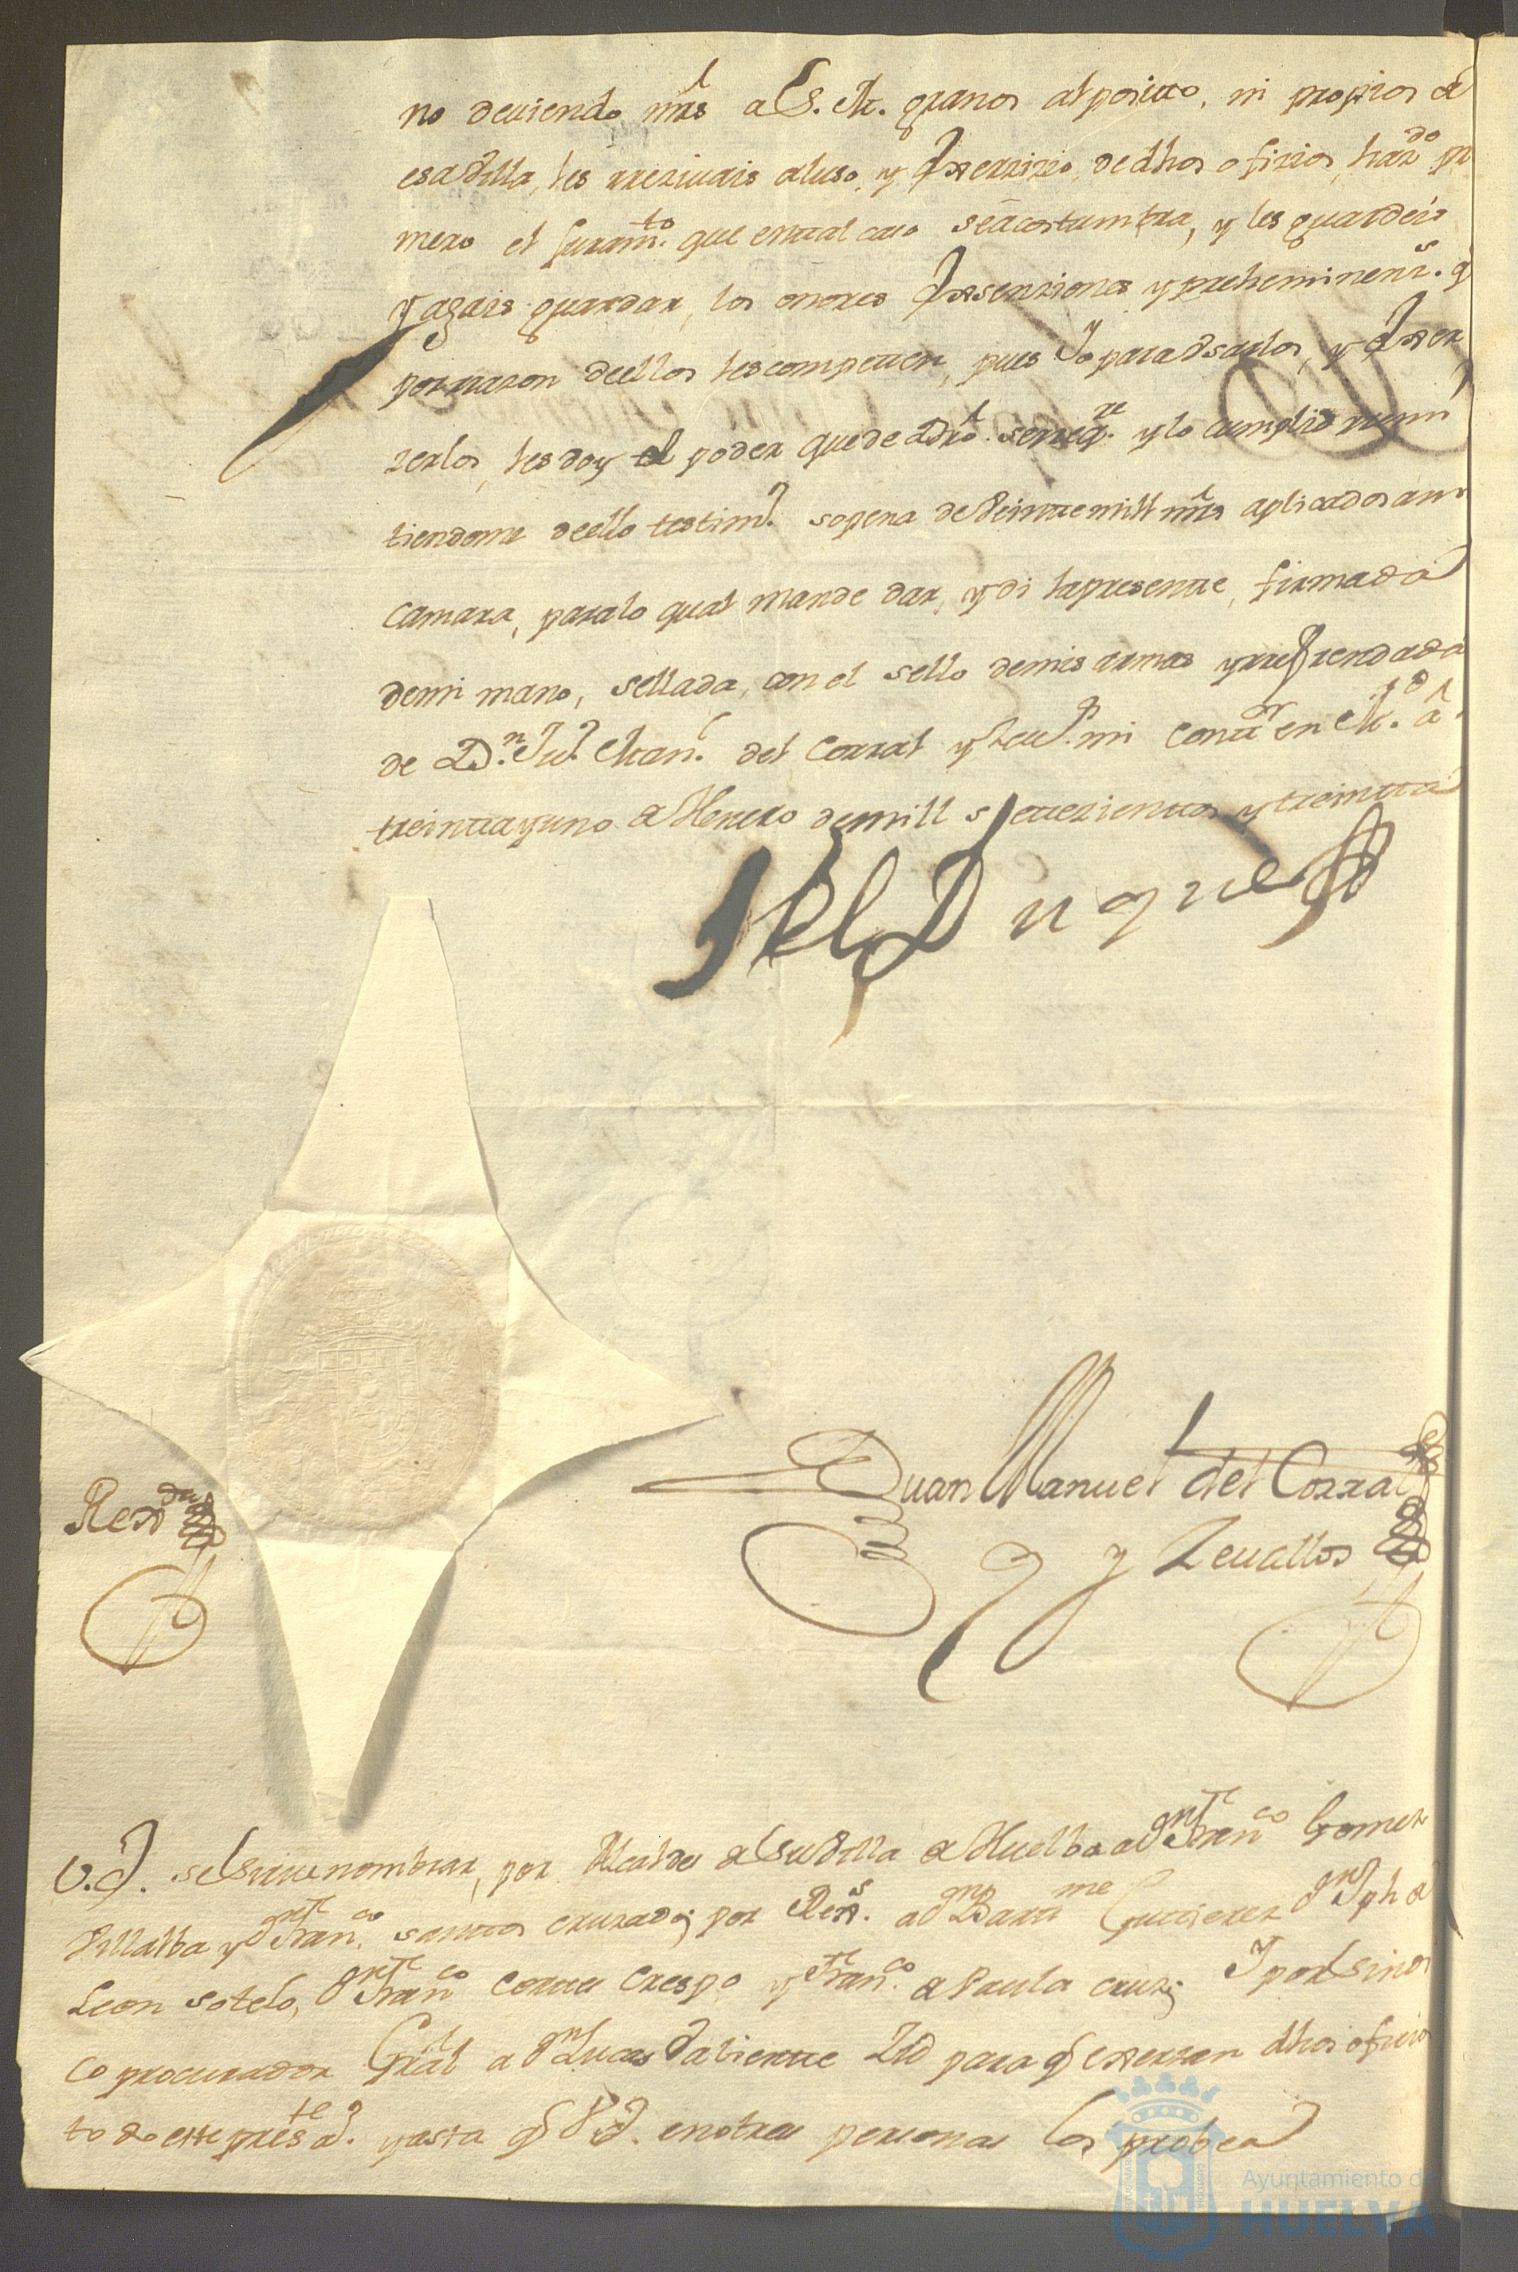 no deviendo mrs a S. M. granos al posito, ni propios de
esa villa, les rrezivais al uso, y exerzizio, de dhos ofizios, hazdo pri
mero el juramto. que en tal caso se acostumbra, y les guardeis
y agais guardar, los onores exsenziones y preheminens. q
por rrazon de ellos les competen, pues Yo para usarlos, y exer
zerlos, les doy el poder que de dro. se rreqre. y lo cumplid rremi
tiendome de ello testimo. so pena de Veinte mill mrs aplicados a mi
camara, para lo qual mande dar, y di la presente, firmada
de mi mano, sellada, con el sello de mis armas y rrefrendada
de Dn. Ju. Man. del Corral y Zev. mi Contor en Md. a
treinta y uno de Henero de mill settezientos y treintta
El Duque
Juan Manuel del Corral
y Zevallos
Rexda
V. E. se sirve nombrar, por Alcaldes de su Villa de Huelba a Dn Franco Gomez
Villalba y Dn Franco. santos cruzado; por Rexs. a Dn Barme Gutierrez Dn Jph de
Leon sotelo, Dn Franco Correa Crespo y Franco. de Paula cruz; Y por sindi
co procurador Gral a Dn Lucas Valiente Zid para q exerzan dhos ofizios
todo este preste a. y asta q V E. en otras personas los probea
Ayuntamiento de
HUELVA